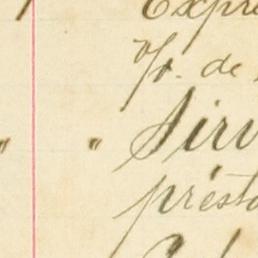 Expre
%. de
" " Sirv
presta